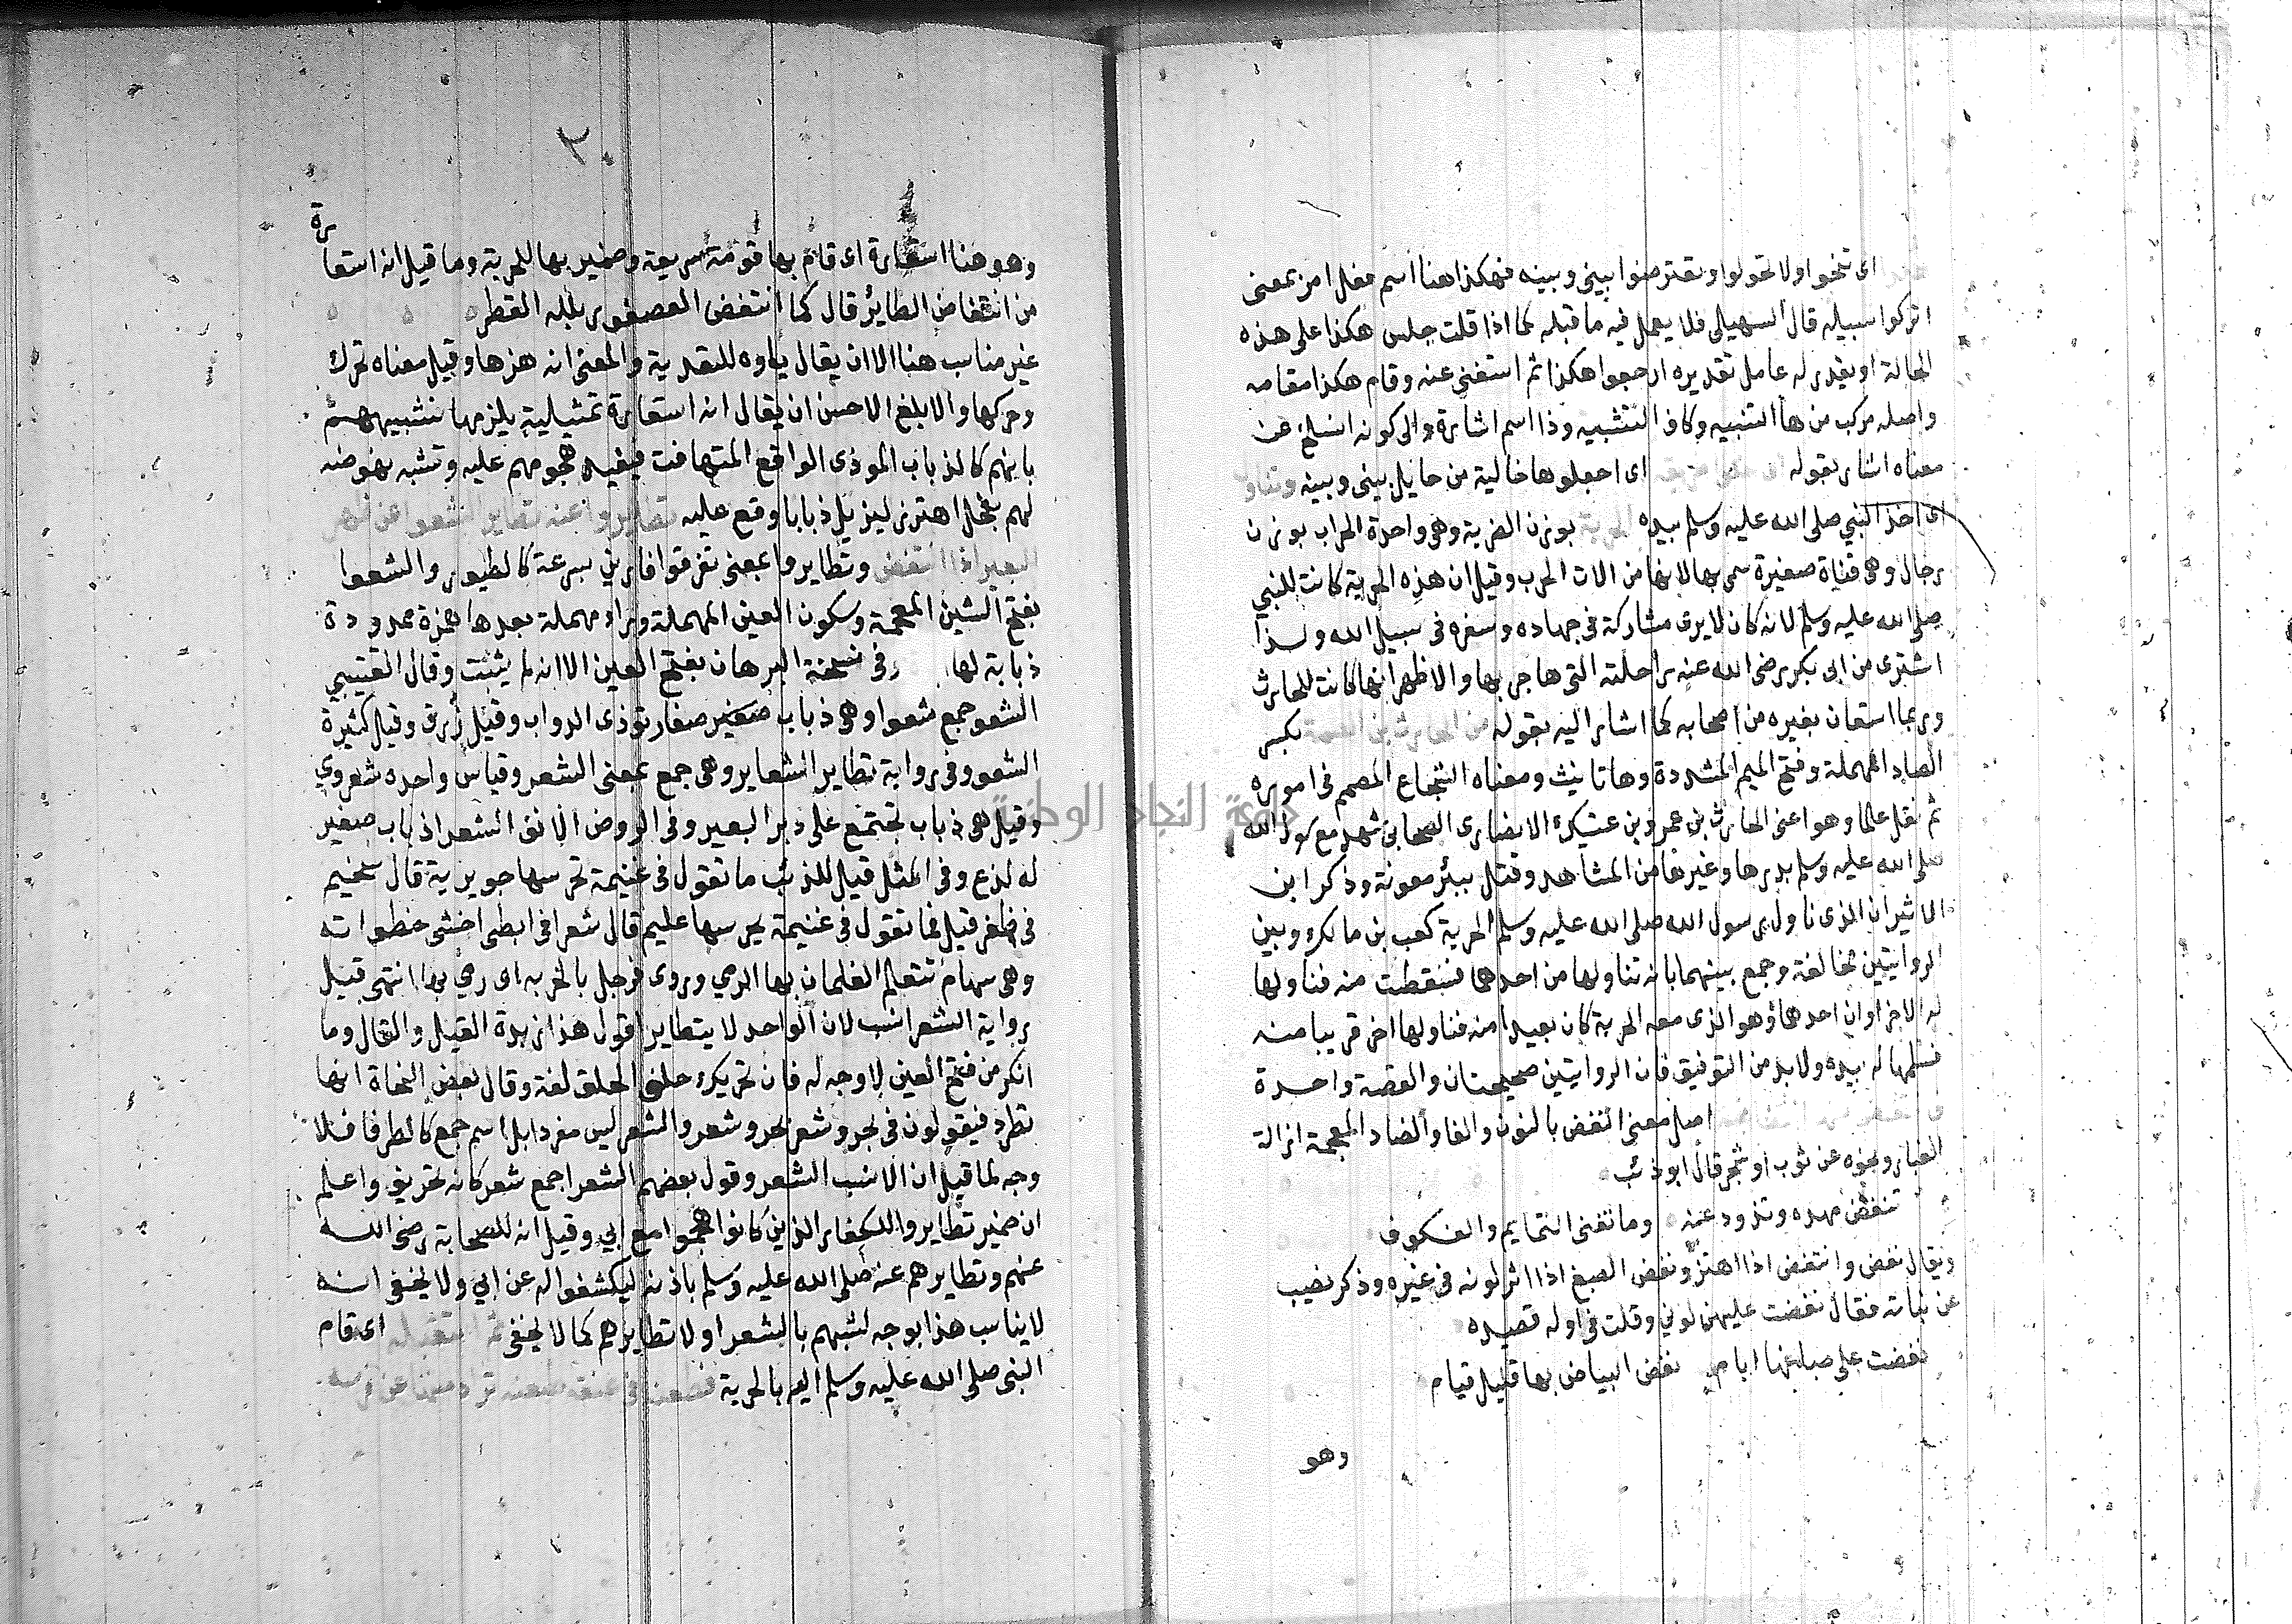 اى تنحوا ولا تحولوا وتعترضوا بينى وبينه فهكذا هنا اسم فعل امر بمعنى
اتركوا سبيله قال السهيلى فلا يعمل فيه ما قبله كما اذا قلت جلس هكذا على هذه
الحالة او يقدر له عامل تقديره ارجعوا هكذا ثم استغنى عنه وقام هكذا مقامه
واصله مركب من ها التنبيه وكاف التشبيه وذا اسم اشارة والى كونه انسلخ عن
معناه اشار بقوله اى اجعلوها خالية من حايل بينى وبينه وتناول
اى اخذ النبي صلى الله عليه وسلم بيده الحربة بوزن الضربة وهى واحدة الحراب بوزن
رجال وهى قناة صغيرة سمى بها لانها من الات الحرب وقيل ان هذه الحربة كانت للنبي
صلى الله عليه وسلم لانه كان لا يرى مشاركة فى جهاده وسفره فى سبيل الله ولذا
اشترى من ابى بكر رضى الله عنه راحلته التى هاجر بها والاظهر انها كانت للحارث
وربما استعان بغيره من اصحابه كما اشار اليه بقوله من الحارث بن الصمة بكسر
الصاد المهملة وفتح الميم المشددة وها تانيث ومعناه الشجاع المصمم فى اموره
ثم نقل علما وهو اعنى الحارث بن عمرو بن عتيك الانصارى الصحابى شهد مع رسول الله
صلى الله عليه وسلم بدرها وغيرها من المشاهد وقتل ببئر معونة وذكر ابن
الاثير ان الذى ناول رسول الله صلى الله عليه وسلم الحربة كعب بن مالك وبين
الروايتين مخالفة وجمع بينهما بانه تناولها من احدهما فسقطت منه فناولها
له الاخر او ان احدهما وهو الذى معه الحربة كان بعيدا منه فناولها اخر قريبا منه
فسلمها له بيده ولابد من التوفيق فان الروايتين صحيحتان والقصة واحدة
اصل معنى النفض بالنون والفا والضاد المعجمة ازالة
الغبار ونحوه عن ثوب او شجر قال ابو ذئب
تنفض مهده وتذود عنه وما تغنى التمايم والعكوف
ويقال نفض وانتفض اذا اهتز ونفض الصبغ اذا اثر لونه فى غيره وذكر نصيب
عن بناته فقال نفضت عليهن لوني وقلت فى اوله قصيده
نفضت على صباغها ايام نفض البياض بها قليل قيام
وهو
٢٠
وهو هنا استعارة اى قام بها قومة سريعة وضمير بها للحربة وما قيل انه استعارة
من انتفاض الطائر قال كما انتفض العصفور بلله القطر
غير مناسب هنا الا ان يقال باوه للتعدية والمعنى انه هزها وقيل معناه تحرك
وحركها والابلغ الاحسن ان يقال انه استعارة تمثيلية يلزمها تشبيههم
بانهم كالذباب الموذى الواقع المتهافت فيفيد هجومهم عليه وتشبه نهوضه
لهم بفحل اهتز ليزيل ذبابا وقع عليه تطايروا عنه تطاير الشعرا عن ظهر
البعير اذا انتفض وتطايروا بمعنى تفرقوا فارين بسرعة كالطيور والشعرا
بفتح الشين المعجمة وسكون العين المهملة وراء مهملة بعدها همزة ممدودة
ذبابة لها وفى نسخة البرهان بفتح العين الا انه لم يثبت وقال القتيبي
الشعر جمع شعرا وهى ذباب صغير صغار توذى الدواب وقيل زرق وقيل كثيرة
الشعر وفى رواية تطاير الشعارير وهى جمع بمعنى الشعر وقياس واحده شعرور
وقيل هى ذباب تجتمع على دبر البعير وفى الروض الانف الشعرا ذباب صغير
له لذع وفى المثل قيل للذئب ما تقول فى غنيمة تحرسها جويرية قال شحيم
فى ظفر قيل فما تقول فى غنيمة يحرسها غليم قال شعرا فى ابطى اخشى خطواته
وهى سهام تتعلم الغلمان بها الرمي ويروى فرجل بالحربه اى رمى بها انتهى قيل
رواية الشعر انسب لان الواحد لا يتطاير اقول هذا زبدة القيل والقال وما
انكر من فتح العين لا وجه له فان تحريك حلقى الحلق لغة وقال بعض النحاة انها
تطرد فيقولون فى بحر وشعر بحر وشعر والشعر ليس مفردا بل اسم جمع كالطرفا فلا
وجه لما قيل ان الانسب الشعر وقول بعضهم الشعرا جمع شعر كانه تحريف واعلم
ان ضمير تطايروا للكفار الذين كانوا هجموا مع ابي وقيل انه للصحابة رضى الله
عنهم وتطايرهم عنه صلى الله عليه وسلم باذنه ليكشفوا له عن ابي ولا يخفى انه
لا يناسب هذا بوجه لشبههم بالشعر اولا تطايرهم كما لا يخفى ثم استقبله اى قام
النبى صلى الله عليه وسلم اليه بالحربة فطعنه فى عنقه طعنة تردى منها عن فرسه
جامعة النجاح الوطنية